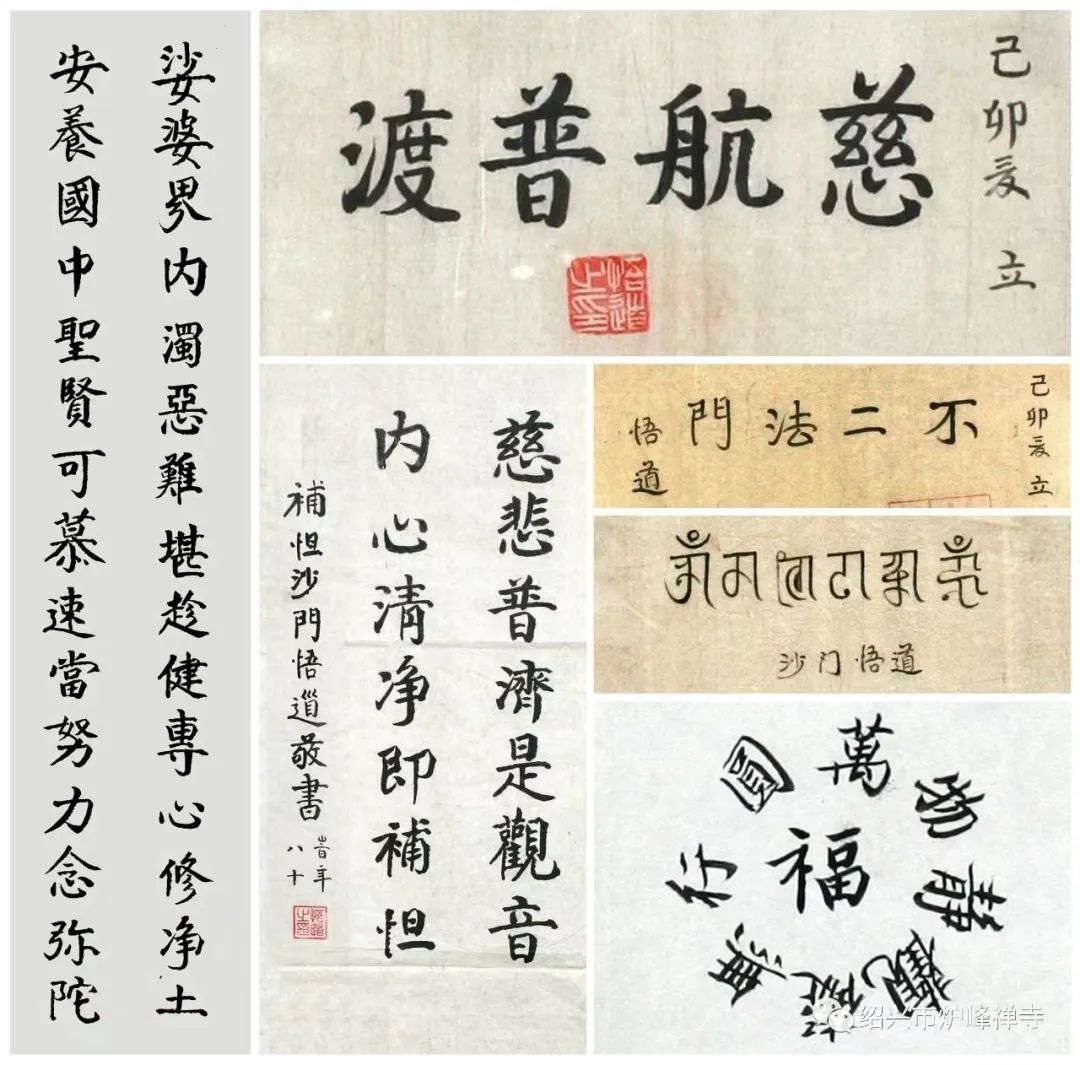 娑婆界内濁惡難堪趁健專心修净土
安養國中聖賢可慕速當努力念弥陀
己卯夏 立
慈航普渡
悟道之印
慈悲普濟是觀音
内心清净即補怛
補怛沙門悟道敬書
峕年
八十
悟道之印
己卯夏 立
不二法門
悟道
沙门悟道
福
萬
靜
觀
無
行
圓
绍兴市炉峰禅寺